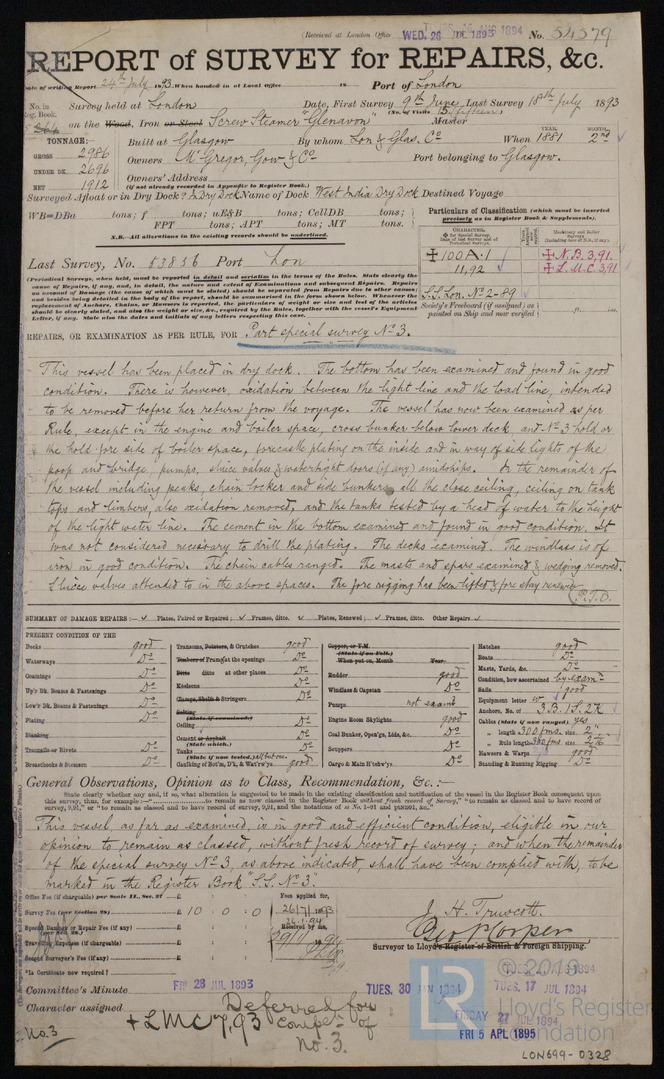 (Received at London Office WED. 26 JUL 1893 AUG 1894 No. 54579
REPORT of SURVEY for REPAIRS, &c.
Date of writing Report 24th July 1893. When handed in at Local Office 18 Port of London
No. in Reg. Book. Survey held at London Date, First Survey 9th June, Last Survey 18th July 1893
(No. of Visits 15 fifteen)
on the Wood, Iron or Steel Screw Steamer "Glenavon" Master
TONNAGE:— Built at Glasgow By whom Lon & Glas. Co When 1881 2nd
YEAR. MONTH.
GROSS 2986
UNDER DK. 2696 Owners McGregor, Gow & Co Port belonging to Glasgow.
NET 1912 Owners' Address
(if not already recorded in Appendix to Register Book.)
Surveyed Afloat or in Dry Dock? In Dry Dock Name of Dock West India Dry Dock Destined Voyage
WB=DBa tons; f tons; uE&B tons; CellDB tons;
FPT tons; APT tons; MT tons.
N.B.—All alterations in the existing records should be underlined.
Particulars of Classification (which must be inserted precisely as in Register Book & Supplements).
CHARACTER.
Machinery and Boiler Surveys
100A.1 N.B.3,91.
11,92 L.M.C.3,91
S.S. Lon. No 2-89
Society's Freeboard (if assigned) as painted on Ship and now verified
Last Survey, No. 53856 Port Lon
(Periodical Surveys, when held, must be reported in detail and seriatim in the terms of the Rules. State clearly the
cause of Repairs, if any, and, in detail, the nature and extent of Examinations and subsequent Repairs. Repairs
on account of Damage (the cause of which must be stated) should be separated from Repairs due to other causes;
and besides being detailed in the body of the report, should be summarised in the form shown below. Whenever the
replacement of Anchors, Chains, or Hawsers is reported, the particulars of weight or size and test of the articles
should be clearly stated, and also the weight or size, &c., required by the Rules, together with the vessel's Equipment
Letter, if any. State also the dates and initials of any letters respecting this case.
REPAIRS, OR EXAMINATION AS PER RULE, FOR Part special survey No 3.
This vessel has been placed in dry dock. The bottom has been examined and found in good
condition. There is however, oxidation between the light line and the load line, intended
to be removed before her return from the voyage. The vessel has now been examined as per
Rule, except in the engine and boiler space, cross bunker below lower deck, and No 3 hold or
the hold fore side of boiler space, forecastle plating on the inside and in way of side lights of the
poop and bridge, pumps, sluice valves & watertight doors (if any) amidships. In the remainder of
the vessel including peaks, chain locker and side bunkers all the close ceiling, ceiling on tank
tops and limbers, also oxidation removed, and the tanks tested by a head of water to the height
of the light water line. The cement in the bottom examined and found in good condition. It
was not considered necessary to drill the plating. The decks examined. The windlass is of
iron in good condition. The chain cables ranged. The masts and spars examined & wedging removed.
Sluice valves attended to in the above spaces. The fore rigging has been lifted & fore stay renewed
(P.T.O.
SUMMARY OF DAMAGE REPAIRS:— Plates, Faired or Repaired; Frames, ditto. Plates, Renewed; Frames, ditto. Other Repairs
PRESENT CONDITION OF THE
Decks good
Waterways Do
Coamings Do
Up'r Dk. Beams & Fastenings Do
Low'r Dk. Beams & Fastenings Do
Plating Do
Planking
Treenails or Rivets Do
Breasthooks & Stemson Do
Transoms, Pointers, & Crutches good
Timbers or Frames at the openings Do
Ditto ditto at other places Do
Keelsons Do
Clamps, Shelfs & Stringers Do
Salting
(State if examined)
Ceiling Do
Cement or Asphalt Do
(State which.)
Tanks Do
(State if now tested.)
Caulking of Bot'm, D'k, & Wat'rw'ys good
Copper, or Y.M.
(State if on Felt.)
When put on, Month Year
Rudder good
Windlass & Capstan Do
Pumps not examd
Engine Room Skylights good
Coal Bunker, Open'gs, Lids, &c. Do
Scuppers Do
Cargo & Main H'tchw'ys Do
Hatches good
Boats Do
Masts, Yards, &c. Do
Condition, how ascertained by exam.
Sails good
Equipment letter w
Anchors, No. of 3B. 1S. 2K
Cables (State if now ranged) yes
" length 300 fms. size 2"
" Rule length 300 fms. size 2 1/16
Hawsers & Warps good
Standing & Running Rigging Do
General Observations, Opinion as to Class, Recommendation, &c.:—
State clearly whether any, and if so, what alteration is suggested to be made in the existing classification and notification of the vessel in the Register Book consequent upon
This vessel, as far as examined, is in good and efficient condition, eligible in our
opinion to remain as classed, without fresh record of survey; and when the remainder
of the special survey No 3, as above indicated, shall have been complied with, to be
marked in the Register Book "S.S. No 3".
Office Fee (if chargeable) per Scale II., Sec. 27 £
Fees applied for,
Survey Fee (per Section 28) £ 10 : 0 : 0 26/7/1893
26.1.94
Special Damage or Repair Fee (if any) £
Received by me,
Travelling Expenses (if chargeable) £
Second Surveyor's Fee (if any) £
"Is Certificate now required?
J. H. Truscott.
Geo. P. Corpen
Surveyor to Lloyd's Register of British & Foreign Shipping.
Committee's Minute FRI 28 JUL 1893 TUES. 30 JAN 1894 TUES. 17 JUL 1894
Character assigned Deferred for
+LMC 7,93 Complet. of
No. 3.
No. 3
FRIDAY 27 JUL 1894
FRI 5 APL 1895
LR
© 2019
Lloyd's Register
Foundation
LON699-0328